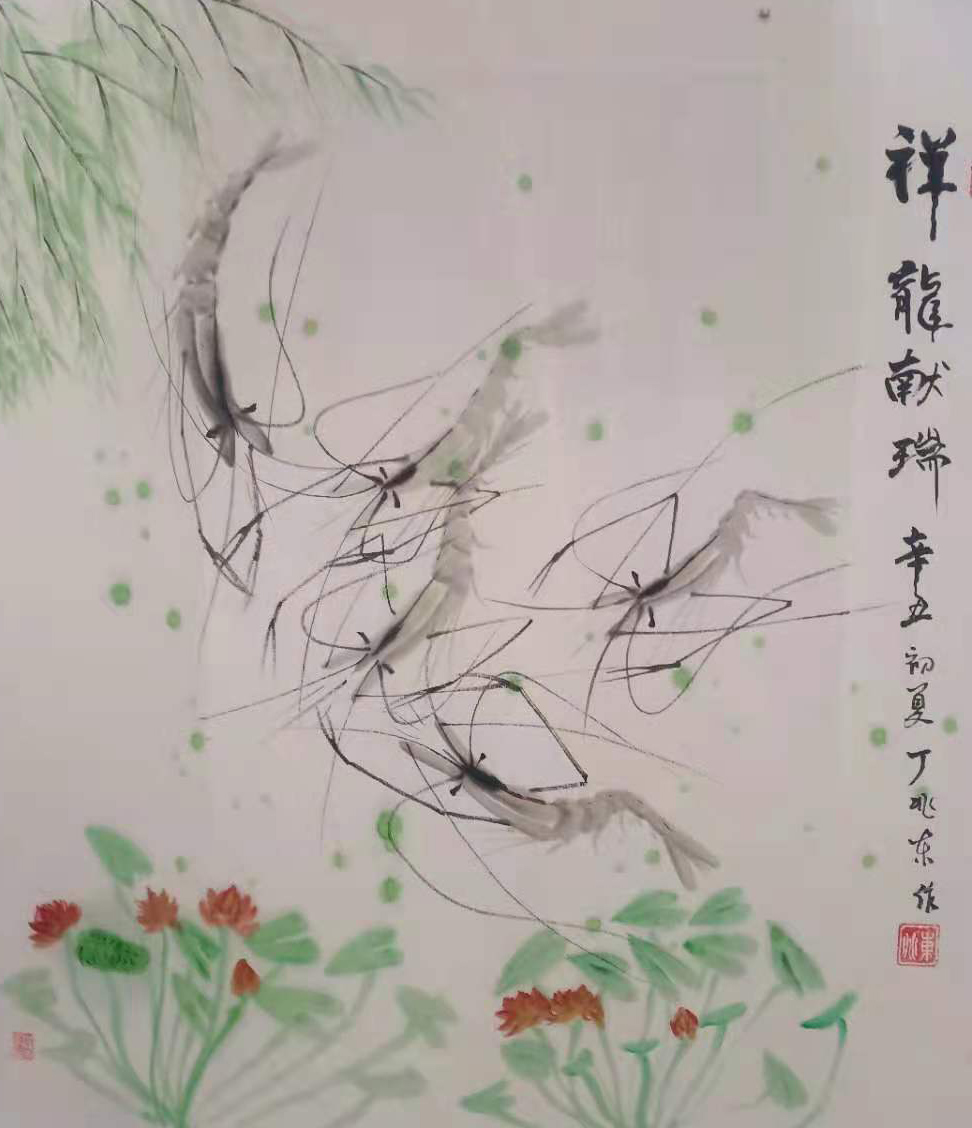 祥龍献瑞
辛丑初夏丁兆东作